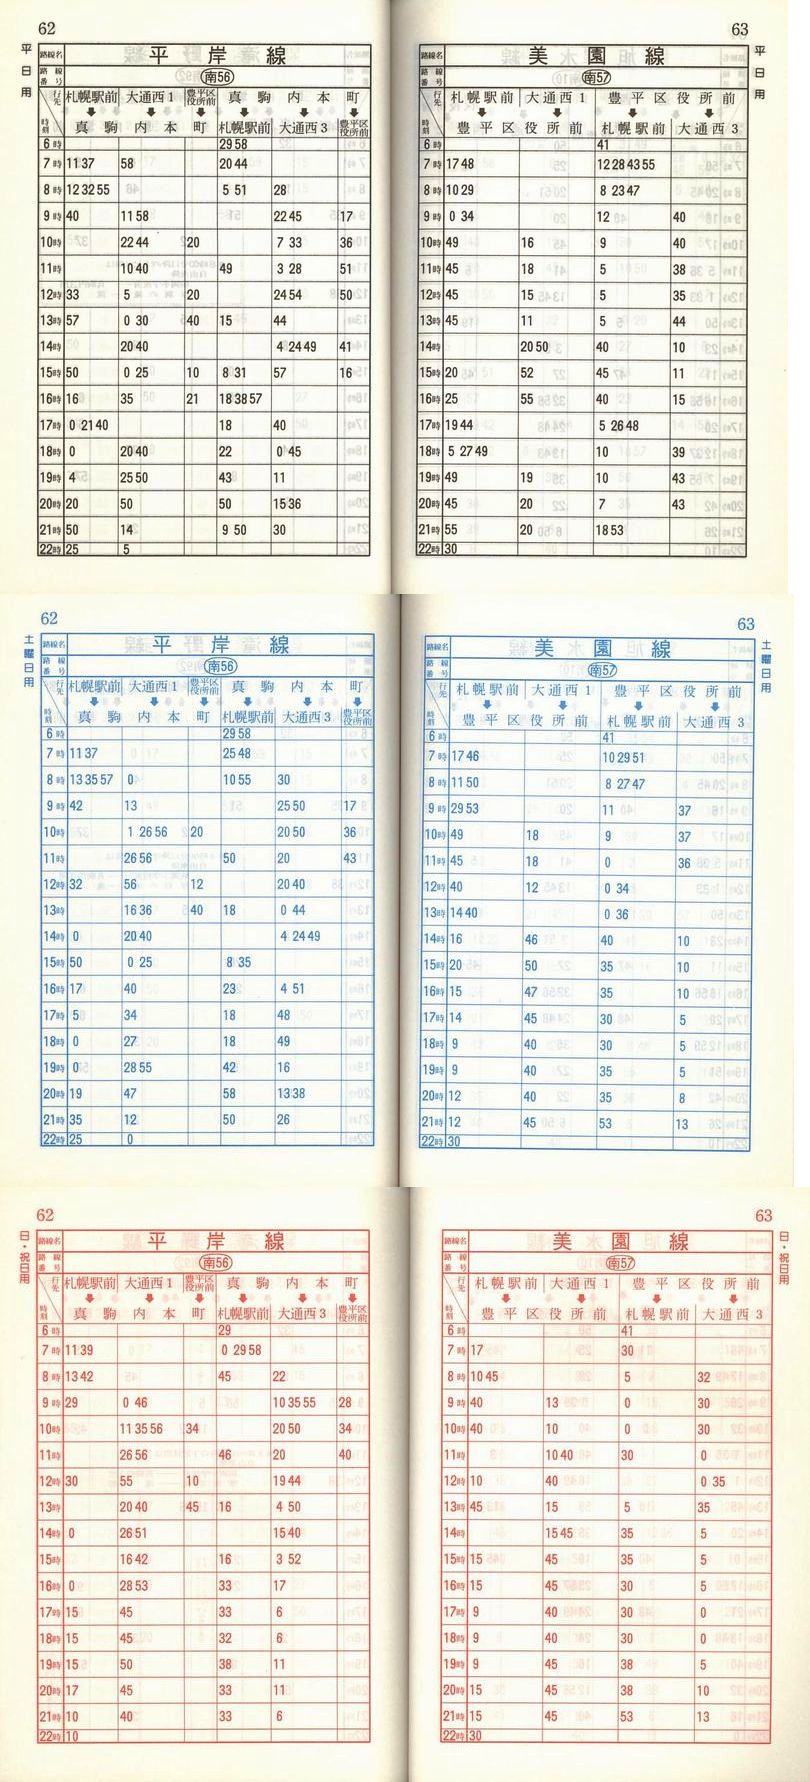 62
平日用
路線名 平岸線
路線番号 南56
行先 札幌駅前 大通西1 豊平区役所前 真駒内本町
時刻 真駒内本町 札幌駅前 大通西3 豊平区役所前
6時 29 58
7時 11 37 58 20 44
8時 12 32 55 5 51 28
9時 40 11 58 22 45 17
10時 22 44 20 7 33 36
11時 10 40 49 3 28 51
12時 33 5 20 24 54 50
13時 57 0 30 40 15 44
14時 20 40 4 24 49 41
15時 50 0 25 10 8 31 57 16
16時 16 35 21 18 38 57
17時 0 21 40 18 40
18時 0 20 40 22 0 45
19時 4 25 50 43 11
20時 20 50 50 15 36
21時 50 14 9 50 30
22時 25 5
63
平日用
路線名 美園線
路線番号 南57
行先 札幌駅前 大通西1 豊平区役所前
時刻 豊平区役所前 札幌駅前 大通西3
6時 41
7時 17 48 12 28 43 55
8時 10 29 8 23 47
9時 0 34 12 40
10時 49 16 9 40
11時 45 18 5 38
12時 45 15 5 35
13時 45 11 5 44
14時 20 50 40 10
15時 20 52 45 11
16時 25 55 40 15
17時 19 44 5 26 48
18時 5 27 49 10 39
19時 49 19 10 43
20時 45 20 7 43
21時 55 20 18 53
22時 30
62
土曜日用
路線名 平岸線
路線番号 南56
行先 札幌駅前 大通西1 豊平区役所前 真駒内本町
時刻 真駒内本町 札幌駅前 大通西3 豊平区役所前
6時 29 58
7時 11 37 25 48
8時 13 35 57 0 10 55 30
9時 42 13 25 50 17
10時 1 26 56 20 20 50 36
11時 26 56 50 20 43
12時 32 56 12 20 40
13時 16 36 40 18 0 44
14時 0 20 40 4 24 49
15時 50 0 25 8 35
16時 17 40 23 4 51
17時 5 34 18 48
18時 0 27 18 49
19時 0 28 55 42 16
20時 19 47 58 13 38
21時 35 12 50 26
22時 25 0
63
土曜日用
路線名 美園線
路線番号 南57
行先 札幌駅前 大通西1 豊平区役所前
時刻 豊平区役所前 札幌駅前 大通西3
6時 41
7時 17 46 10 29 51
8時 11 50 8 27 47
9時 29 53 11 37
10時 49 18 9 37
11時 45 18 0 36
12時 40 12 0 34
13時 14 40 0 36
14時 16 46 40 10
15時 20 50 35 10
16時 15 47 35 10
17時 14 45 30 5
18時 9 40 30 5
19時 9 40 35 5
20時 12 40 35 8
21時 12 45 53 13
22時 30
62
日・祝日用
路線名 平岸線
路線番号 南56
行先 札幌駅前 大通西1 豊平区役所前 真駒内本町
時刻 真駒内本町 札幌駅前 大通西3 豊平区役所前
6時 29
7時 11 39 0 29 58
8時 13 42 45 22
9時 29 0 46 10 35 55 28
10時 11 35 56 34 20 50 34
11時 26 56 46 20 40
12時 30 55 10 19 44
13時 20 40 45 16 4 50
14時 0 26 51 15 40
15時 16 42 16 3 52
16時 0 28 53 33 17
17時 15 45 33 6
18時 15 45 32 6
19時 15 50 38 11
20時 17 45 33 11
21時 10 40 33 6
22時 10
63
日・祝日用
路線名 美園線
路線番号 南57
行先 札幌駅前 大通西1 豊平区役所前
時刻 豊平区役所前 札幌駅前 大通西3
6時 41
7時 17 30
8時 10 45 5 32
9時 40 13 0 30
10時 40 10 0 30
11時 10 40 30 0
12時 10 40 0 35
13時 45 15 5 35
14時 15 45 35 5
15時 15 45 35 5
16時 15 45 30 5
17時 9 40 30 0
18時 9 40 30 0
19時 9 45 38 5
20時 15 45 38 10
21時 15 45 53 13
22時 30